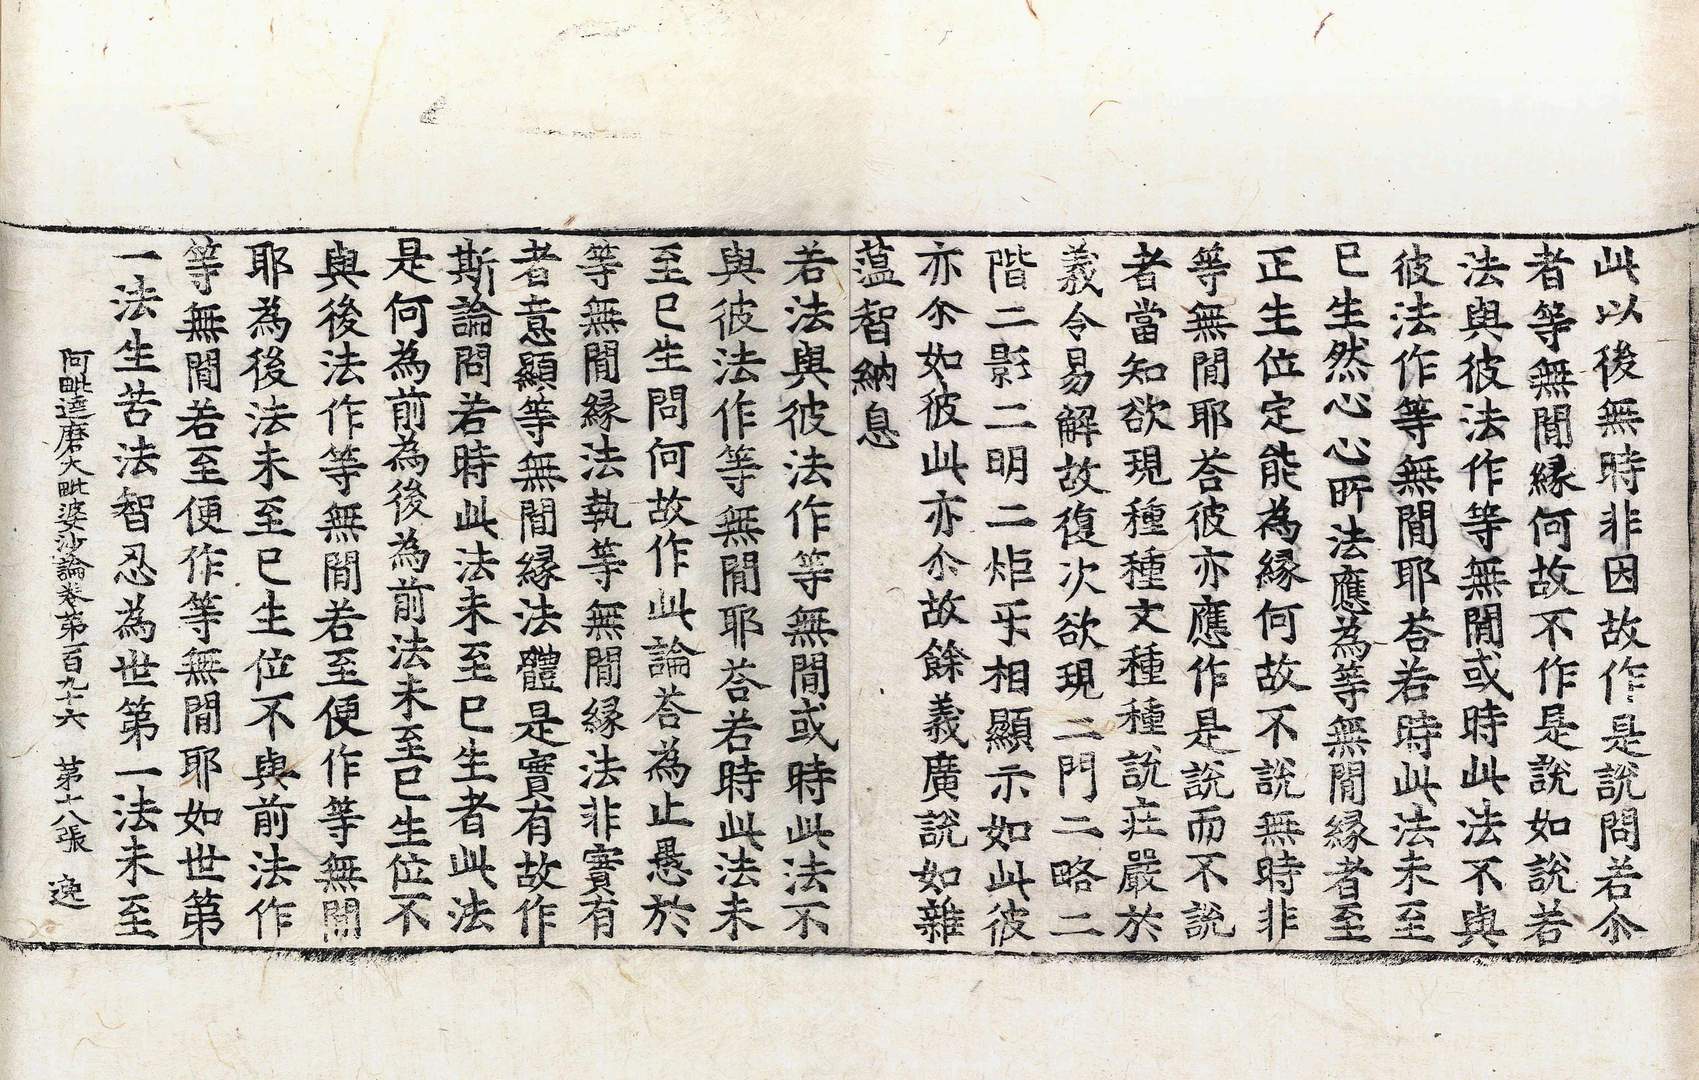 此以後無時非因故作是說問若尒
者等無閒縁何故不作是說如說若
法與彼法作等無閒或時此法不與
彼法作等無閒耶荅若時此法未至
已生然心心所法應為等無閒縁者至
正生位定能為縁何故不說無時非
等無閒耶荅彼亦應作是說而不說
者當知欲現種種文種種說莊嚴於
義令易解故復次欲現二門二略二
階二影二明二炬乎相顯示如此彼
亦尒如彼此亦尒故餘義廣說如雜
藴智納息
若法與彼法作等無閒或時此法不
與彼法作等無閒耶荅若時此法未
至已生問何故作此論荅為止愚於
等無閒縁法執等無閒縁法非實有
者意顯等無閒縁法體是實有故作
斯論問若時此法未至已生者此法
是何為前為後為前法未至已生位不
與後法作等無閒若至便作等無閒
耶為後法未至已生位不與前法作
等無閒若至便作等無閒耶如世第
一法生苦法智忍為世第一法未至
阿毗達磨大毗婆沙論卷第一百九十六 第十八張 逸